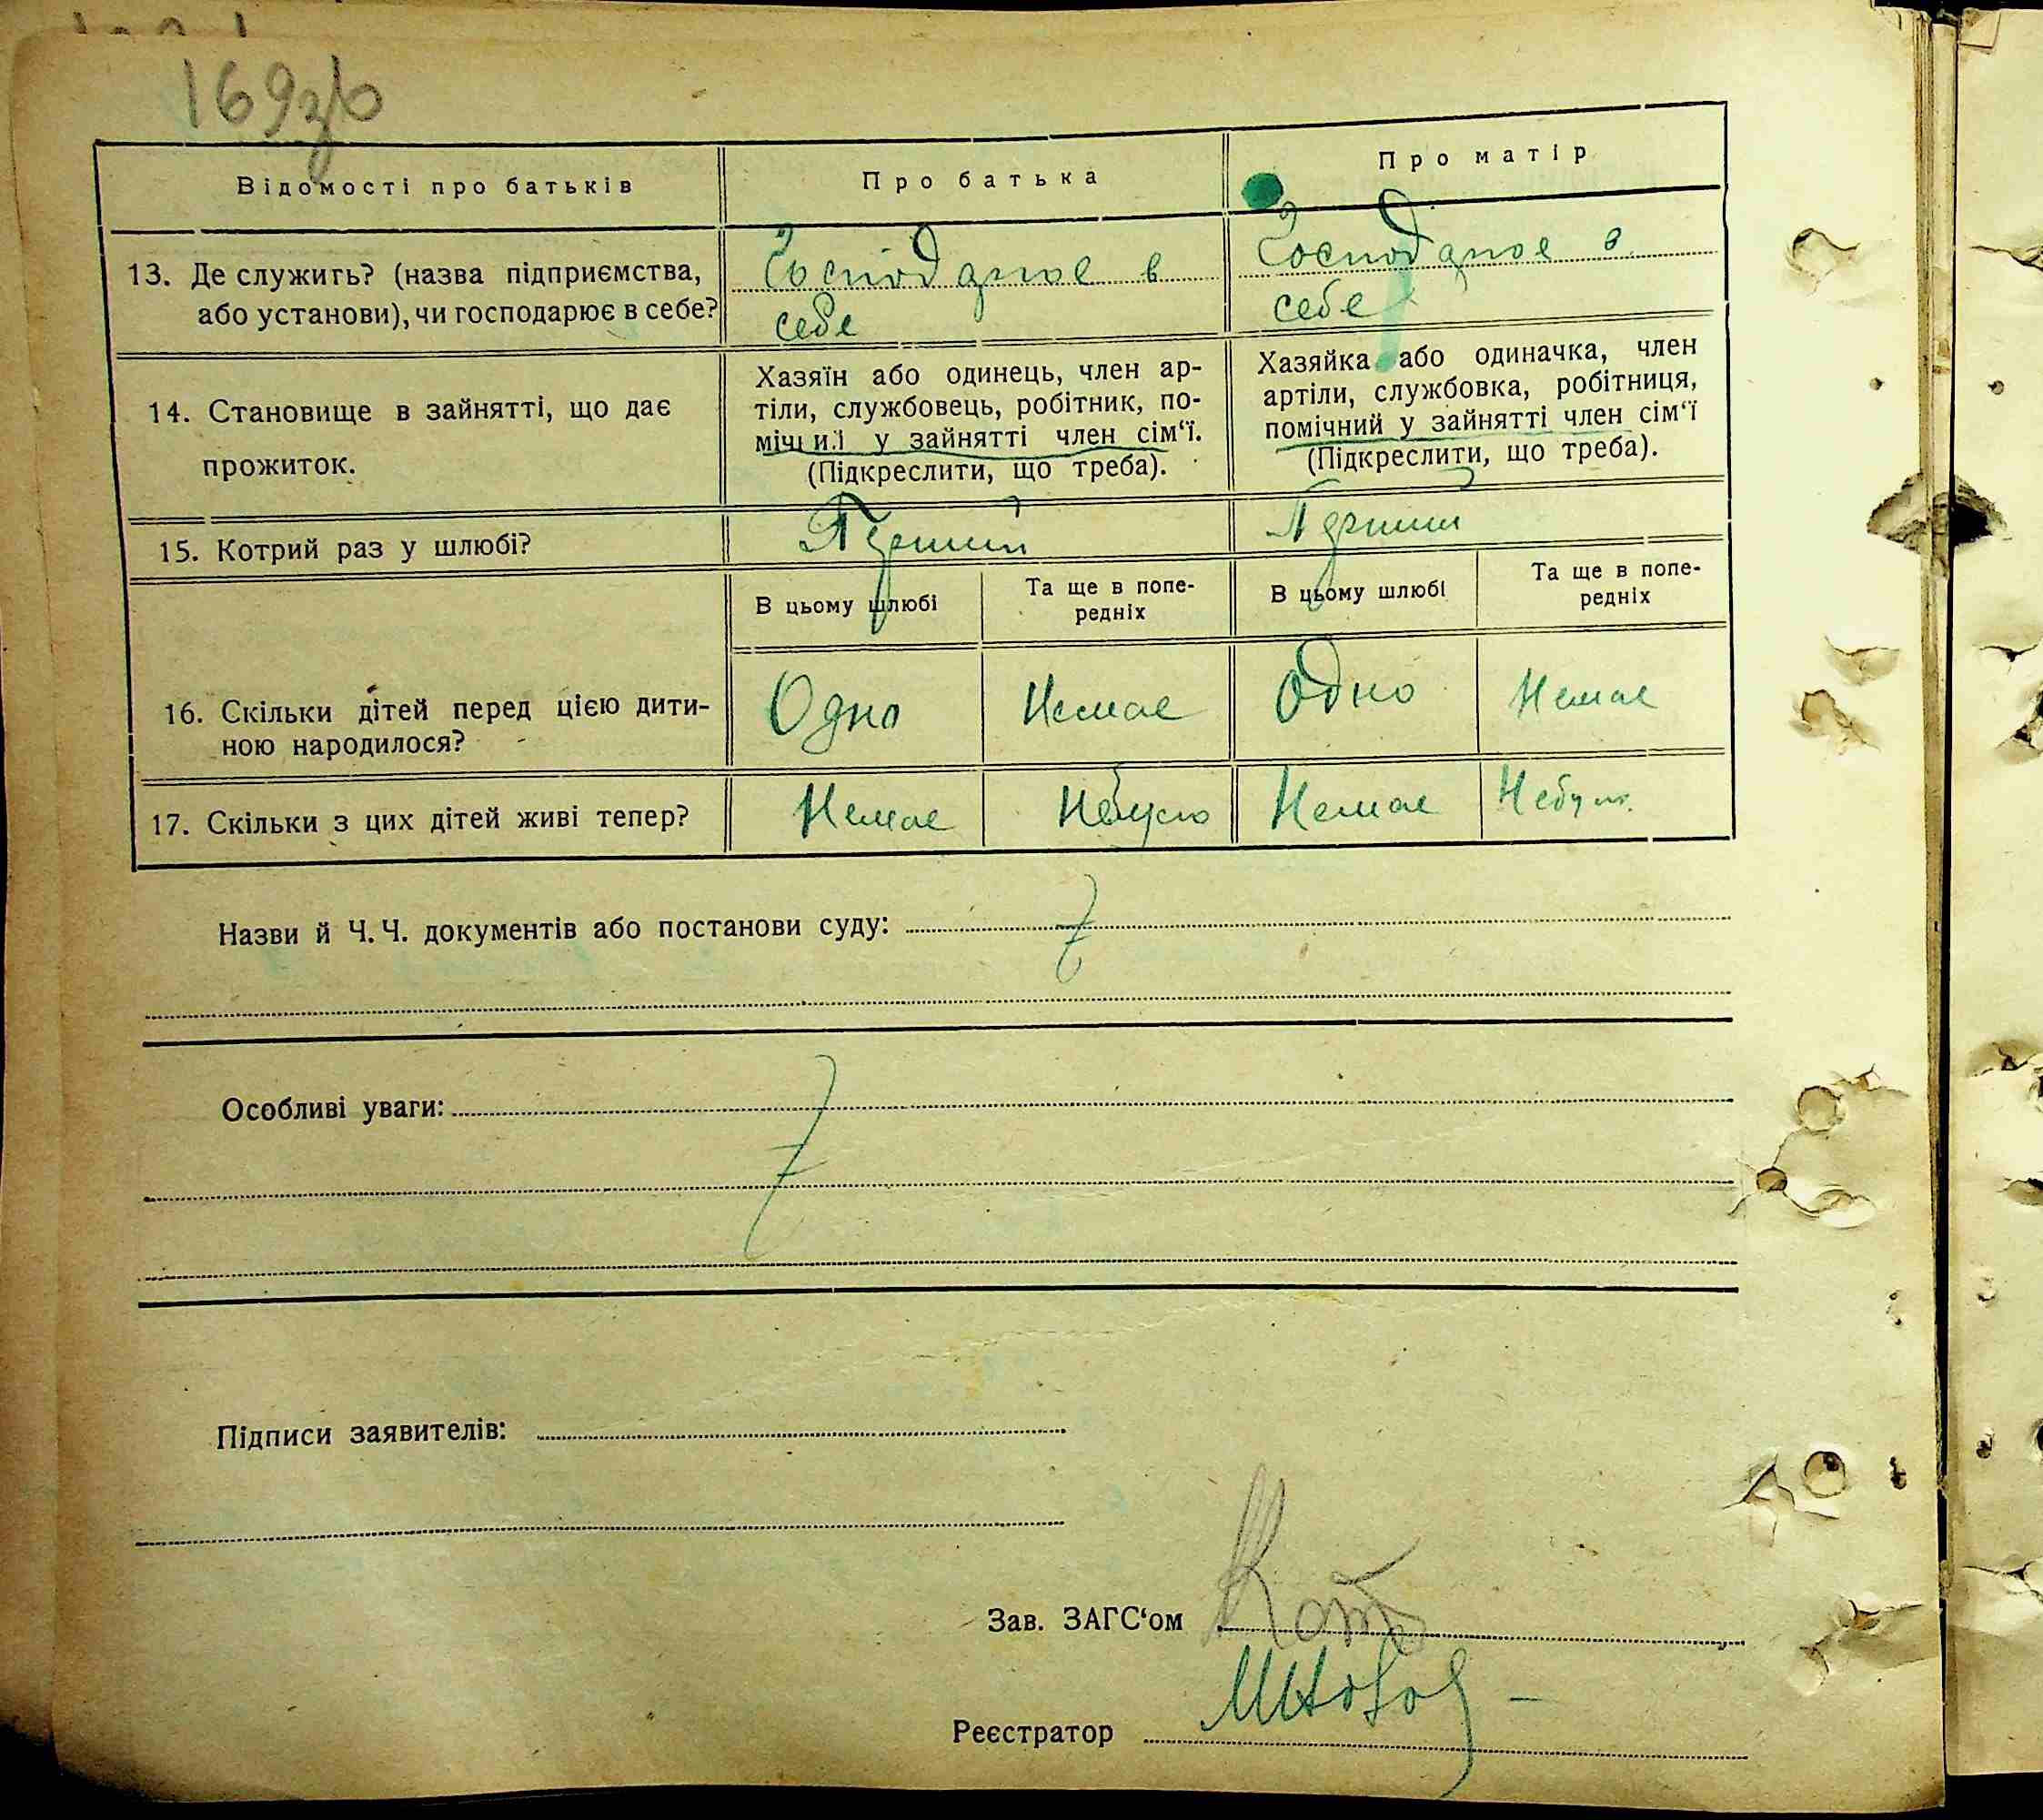 169зв
Відомості про батьків
Про батька
Про матір
13. Де служить? (назва підприємства,
або установи), чи господарює в себе?
Господарює в
себе
Господарює в
себе
14. Становище в зайнятті, що дає
прожиток.
Хазяїн або одинець, член ар-
тіли, службовець, робітник, по-
мічний у зайнятті член сім‘ї.
(Підкреслити, що треба).
Хазяйка або одиначка, член
артіли, службовка, робітниця,
помічний у зайнятті член сім‘ї
(Підкреслити, що треба).
15. Котрий раз у шлюбі?
Перший
Перший
В цьому шлюбі
Та ще в попе-
редніх
В цьому шлюбі
Та ще в попе-
редніх
16. Скільки дітей перед цією дити-
ною народилося?
Одно
Немає
Одно
Немає
17. Скільки з цих дітей живі тепер?
Немає
Небуло
Немає
Небуло
Назви й Ч.Ч. документів або постанови суду:
Особливі уваги:
Підписи заявителів:
Зав. ЗАГС‘ом
Реєстратор